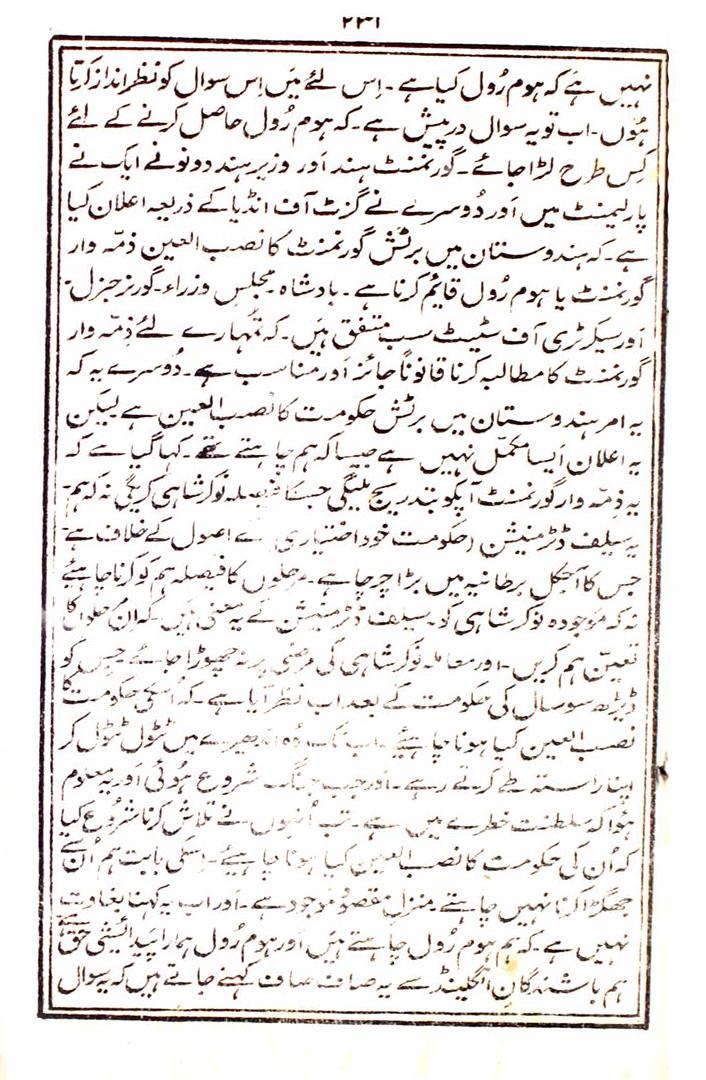 ۲۳۱
نہیں ہے کہ ہوم رُول کیا ہے ۔ اِس لئے میَں اِس سوال کو نظر انداز کرتا
ہُوں ۔ اب تو یہ سوال درپیش ہے ۔ کہ ہوم رُول حاصل کرنے کے لئے
کِس طرح لڑا جائے ۔ گورنمنٹ ہند اَور وزیر ہند دونو نے ایک نے
پارلیمنٹ میں اَور دُوسرے نے گزٹ آف انڈیا کے ذریعہ اعلان کیا
ہے ۔ کہ ہندوستان میں برٹش گورنمنٹ کا نصب العین ذمّہ وار
گورنمنٹ یا ہوم رُول قایٔم کرنا ہے ۔ بادشاہ ۔ مجلسِ وزراء ۔ گورنر جنرل ۔
اَور سیکرٹری آف سٹیٹ سب متفق ہیَں ۔ کہ تمُہارے لئے ذِمّہ وار
گورنمنٹ کا مطالبہ کرنا قانوناً جائز اَور مناسب ہے ۔ دُوسرے یہ کہ
یہ امر ہندوستان میں برٹش حکومت کا نصب العین ہے لیکن
یہ اعلان اَیسا مکمّل نہیں ہے جیسا کہ ہم چاہتے تھے ۔ کہا گیا ہے کہ
یہ ذِمّہ وار گورنمنٹ آپکو بتدریج ملیگی جسکا فیصلہ نوکر شاہی کریگی نہ کہ ہم ۔
یہ سیلف ڈٹرمنیشن (حکومت خود اختیاری) کے اصول کے خلاف ہے
جس کا آجکل برطانیہ میں بڑا چرچا ہے ۔ مرحلوں کا فیصلہ ہم کو کرنا چاہئیے
نہ کہ موجودہ نوکر شاہی کو ۔ سیلف ڈٹرمنیشن کے یہ معنی ہیَں ۔ کہ ان مرحلوں کا
تعیّن ہم کریں ۔ اور معاملہ نوکر شاہی کی مرضی پر نہ چھوڑا جائے جس کو
ڈیڑھ سو سال کی حکومت کے بعد اب نظر آیا ہے ۔ کہ اُسکی حکومت کا
نصب العین کیا ہونا چاہئیے ۔ اب تک وُہ اندھیرے میں ٹٹول ٹٹول کر
اپنا راستہ طے کرتے رہے ۔ اَور جب جنگ شروع ہوُئی اَور یہ معلوم
ہوُا کہ سلطنت خطرے میں ہے ۔ تب اُنہوں نے تلاش کرنا شروُع کیا
کہ اُن کی حکومت کا نصب العین کیا ہونا چاہئیے ۔ اِسکی بابت ہم اُن سے
جھگڑا کرنا نہیں چاہتے ۔ منزلِ مقصوُد موجود ہے ۔ اَور اب یہ کہنا بغاوت
نہیں ہے ۔ کہ ہم ہوم رُول چاہتے ہیَں اَور ہوم رُول ہمارا پیَدائیشی حق ہے
ہم باشندگانِ انگلینڈ سے یہ صاف صاف کہنے جاتے ہیں کہ یہ سوال